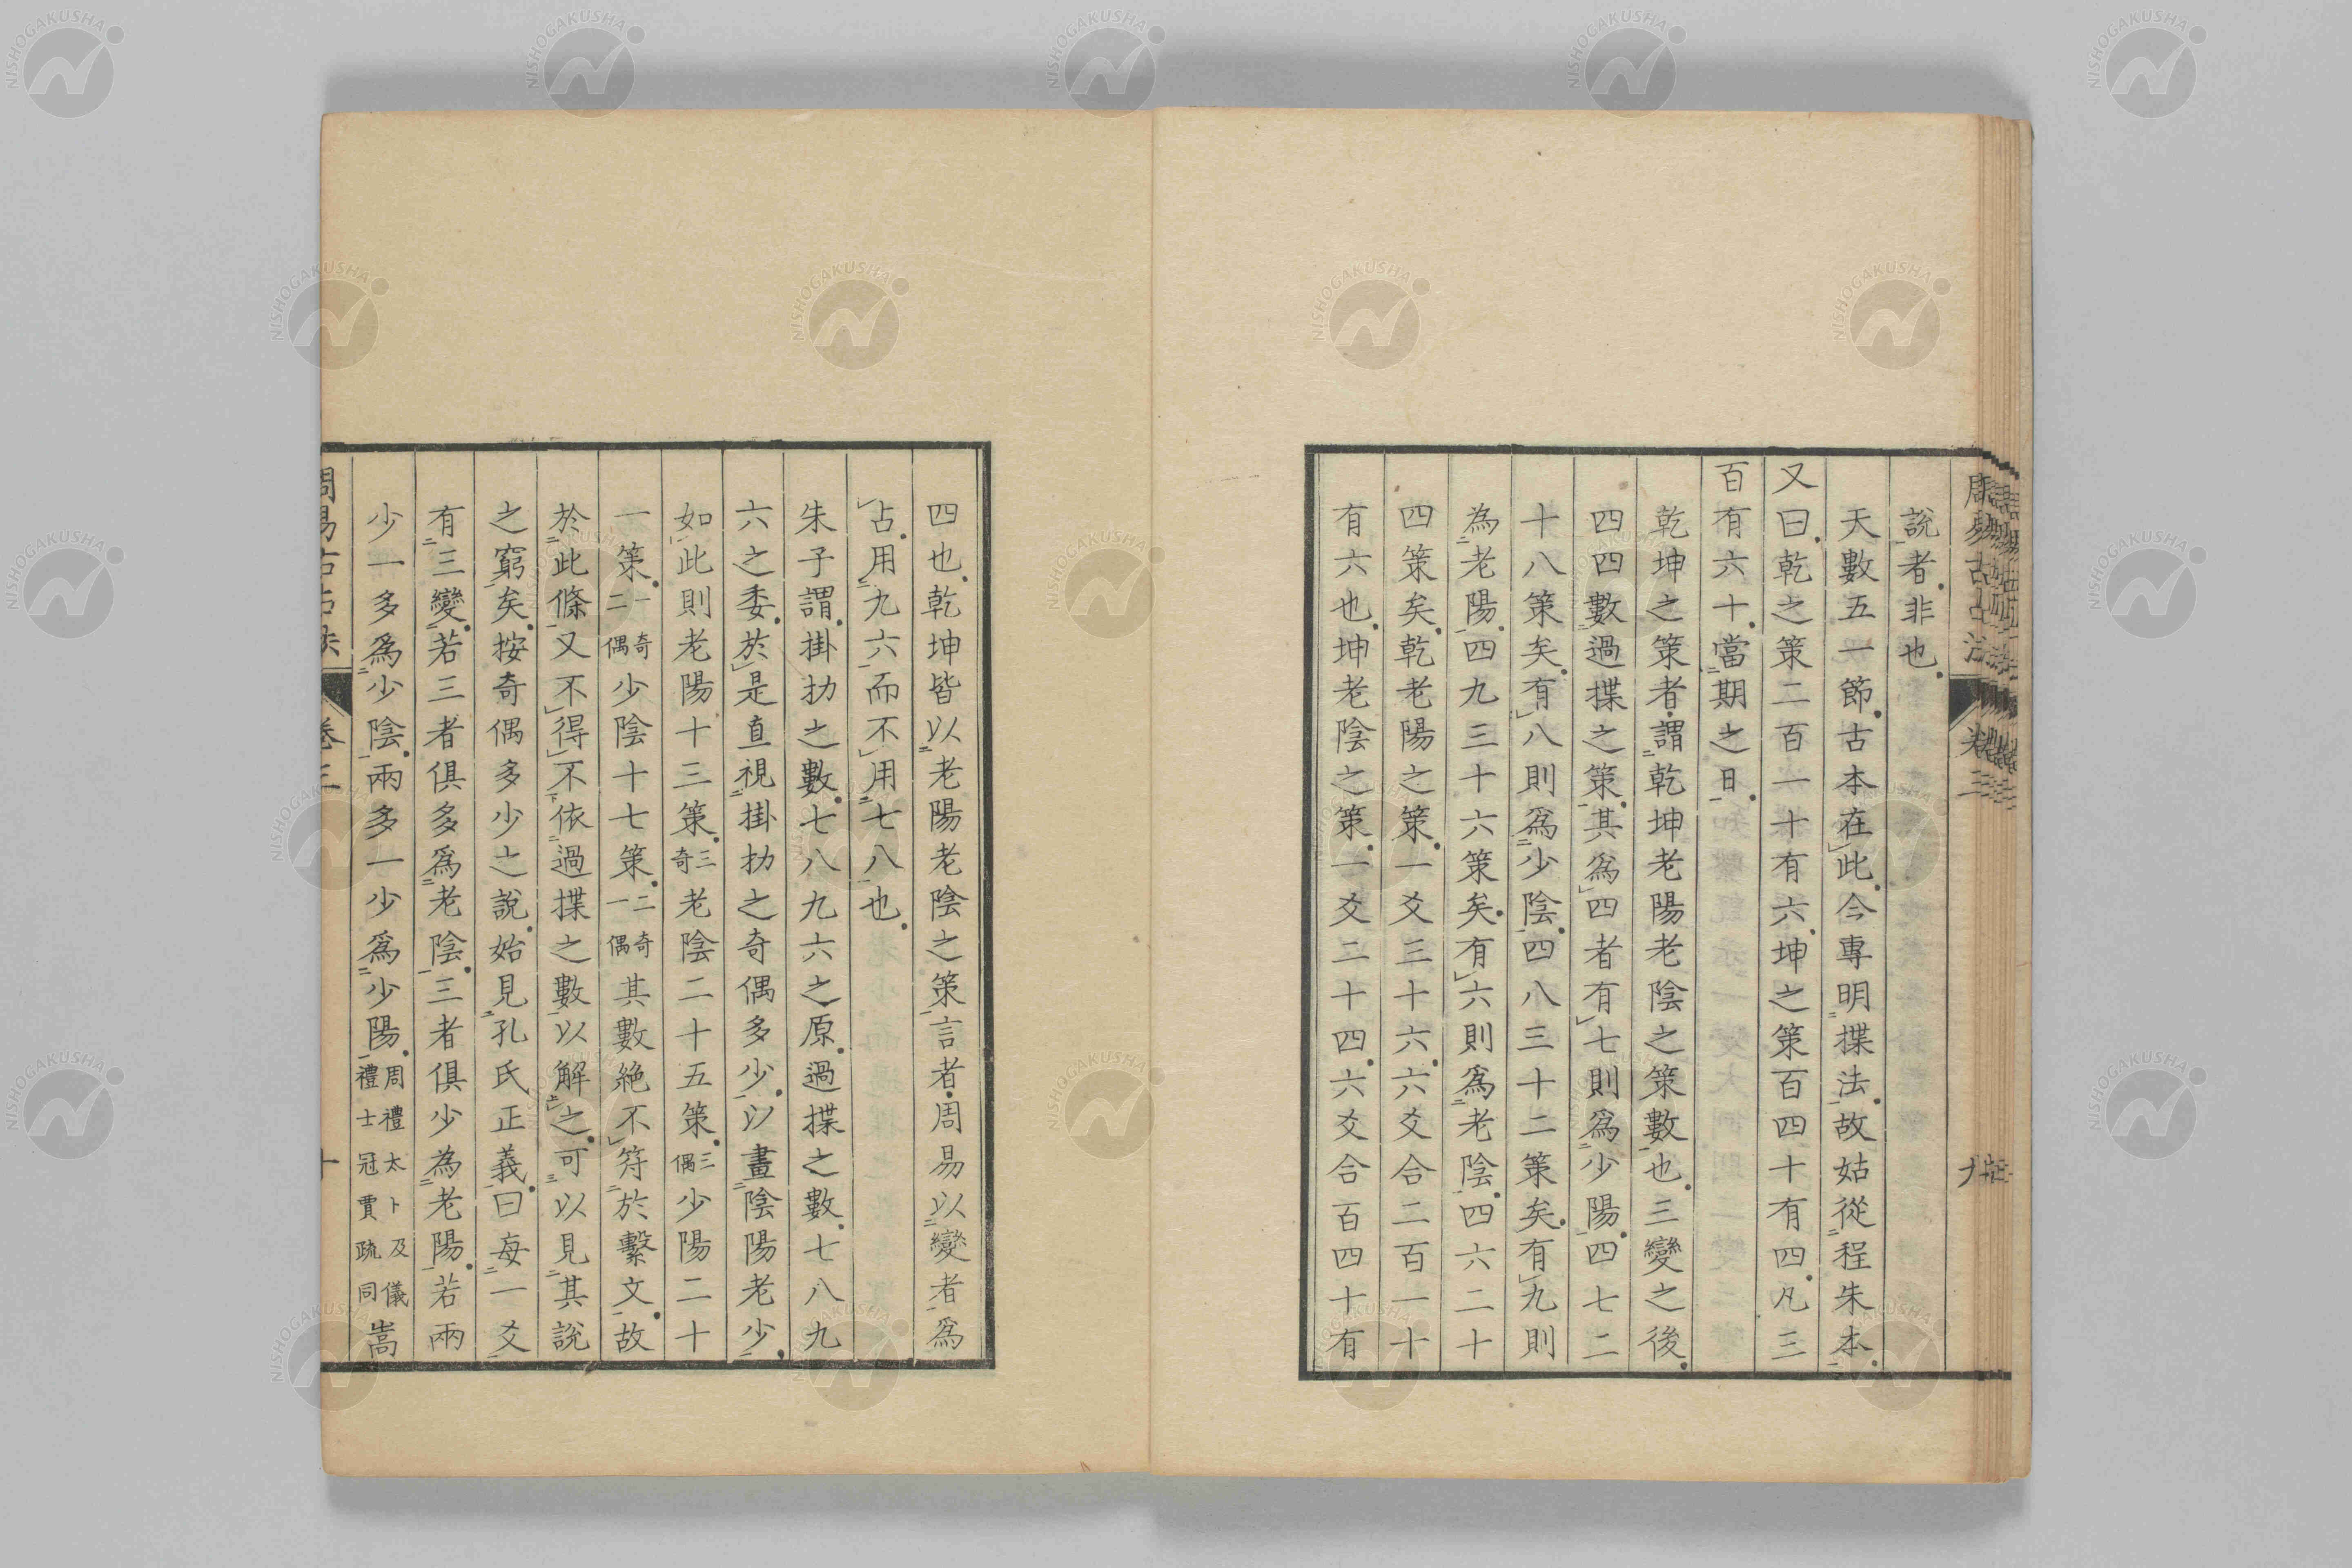 周易古占法 卷三 九
說者非也
天數五一節古本在此今專明揲法故姑從程朱本
又曰乾之策二百一十有六坤之策百四十有四凡三
百有六十當期之日
乾坤之策者謂乾坤老陽老陰之策數也三變之後
四四數過揲之策其爲四者有七則爲少陽四七二
十八策矣有八則爲少陰四八三十二策矣有九則
為老陽四九三十六策矣有六則爲老陰四六二十
四策矣乾老陽之策一爻三十六六爻合二百一十
有六也坤老陰之策一爻二十四六爻合百四十有
四也乾坤皆以老陽老陰之策言者周易以變者爲
占用九六而不用七八也
朱子謂掛扐之數七八九六之原過揲之數七八九
六之委於是直視掛扐之奇偶多少以畫陰陽老少
如此則老陽十三策三奇老陰二十五策三偶少陽二十
一策一奇二偶少陰十七策二奇一偶其數絶不符於繫文故
於此條又不得不依過揲之數以解之可以見其說
之窮矣按奇偶多少之說始見孔氏正義曰每一爻
有三變若三者俱多爲老陰三者俱少為老陽若兩
少一多爲少陰兩多一少爲少陽周禮太卜及儀禮士冠賈疏同嵩
周易古占法 卷三 十
NISHOGAKUSHA